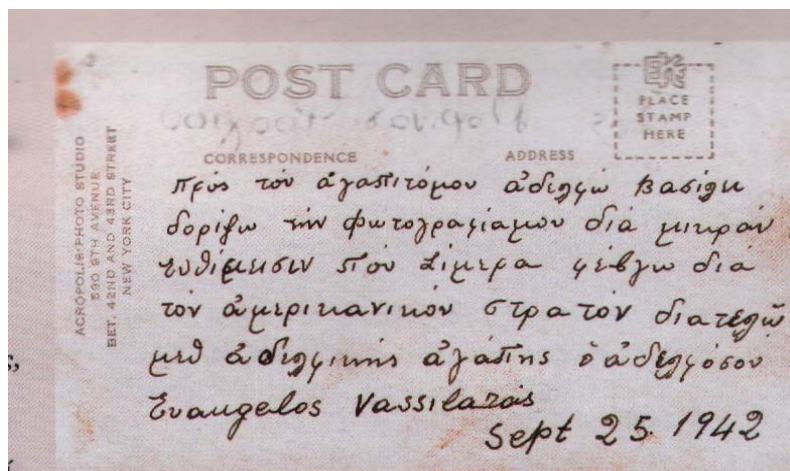 POST CARD
PLACE
STAMP
HERE
CORRESPONDENCE ADDRESS
ACROPOLIS PHOTO STUDIO
590 8TH AVENUE
BET. 42ND AND 43RD STREET
NEW YORK CITY
Πρός τόν ἀγαπιτόμου ἀδελφώ Βασίλη
δορίζω τήν φωτογραφίαμου διά μικράν
ενθίμισιν πού σίμερα φέβγω διά
τόν ἀμερικανικόν στρατόν διατελῶ
μεθ ἀδελφικής ἀγάπης ὁ ἀδελφόσου
Evangelos Vassilaros
Sept 25. 1942